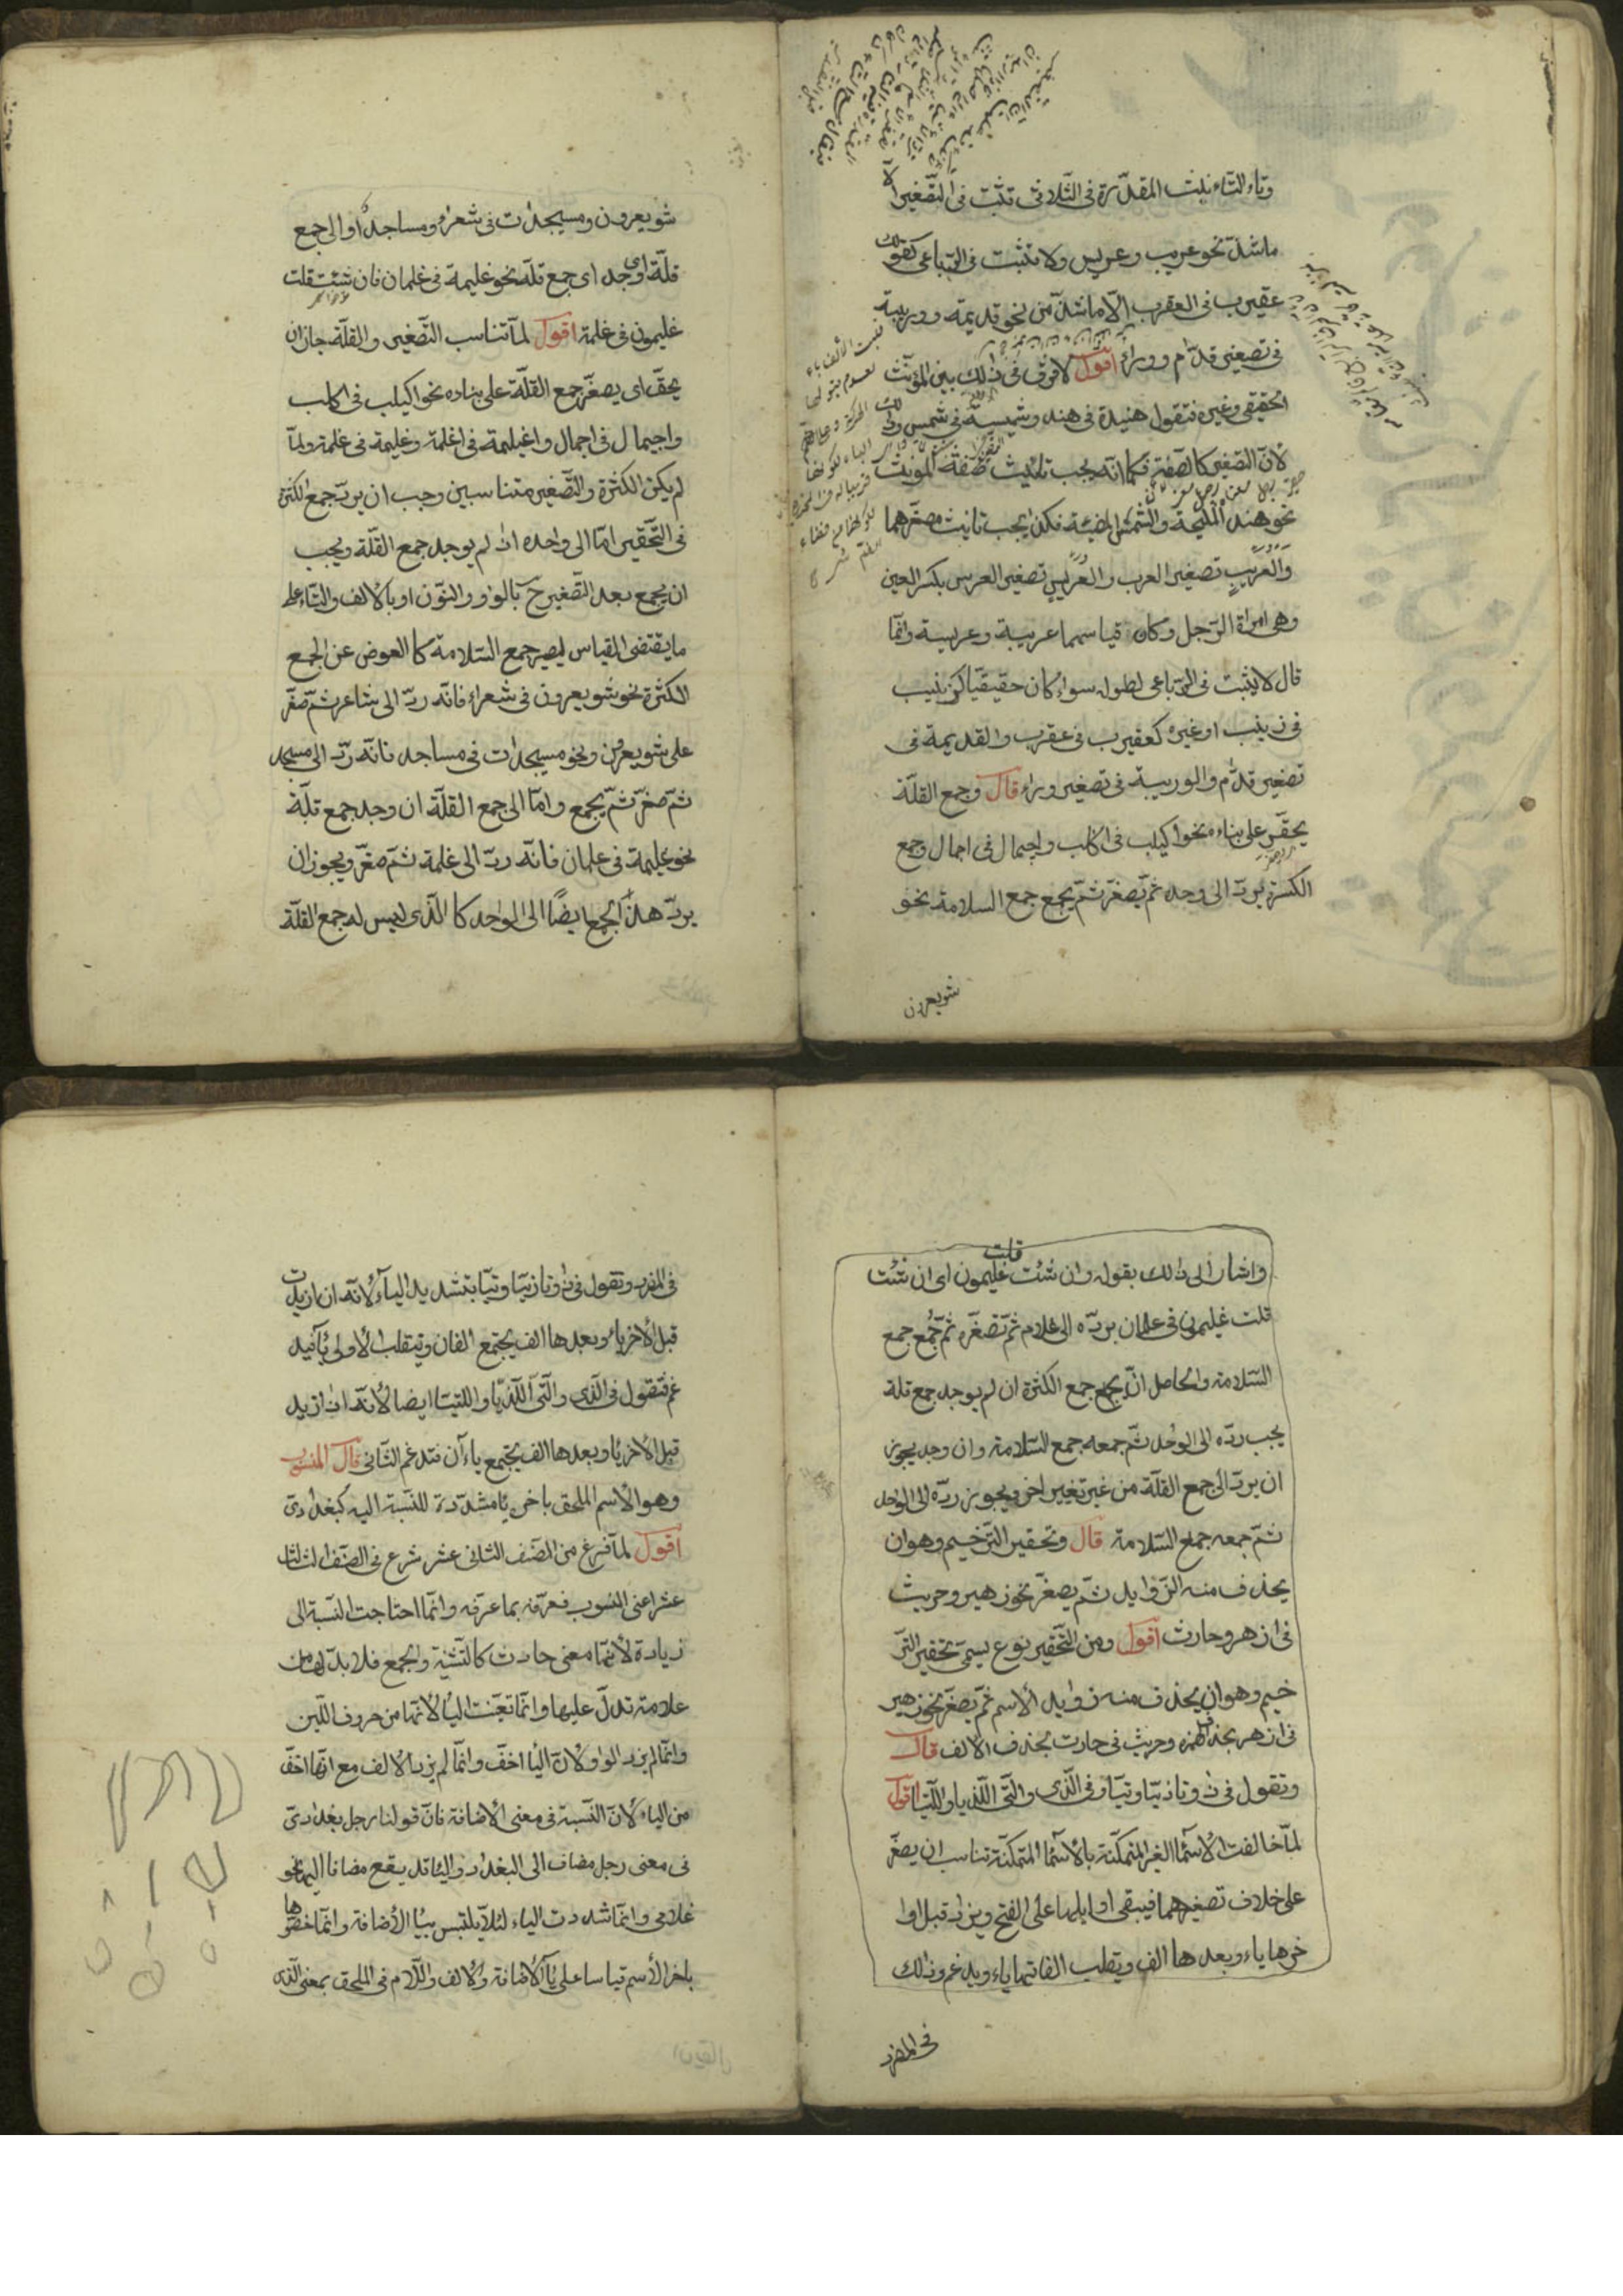 وتاء التانيث المقدّرة فى الثّلاثى تثبت فى التّصغير الّا
ماشذّ نحو عريب وعريس ولا تثبت فى الرّباعى كقولك
عقيرب فى العقرب الّا ماشذّ من نحو قديمة ووريية
فى تصغير قدّام ووراء اقول لافرق فى ذلك بين المؤنّث
الحقيقى وغيره فتقول هنيدة فى هند وشميسة فى شمس وذلك
لانّ التصغير كالصفة فكما انّه يجب تانيث صفة المونث
نحو هند المليحة والشمس المضيئة فكذا يجب تانيث مصغّرهما
والعُرَيب تصغير العرب والعُرَيس تصغير العرس بكسر العين
وهى امراة الرّجل وكان قياسهما عريبة وعريسة وانّما
قال لايثبت فى الرّباعى لطوله سواء كان حقيقيّا كزيينب
فى زينب او غيره كعقيرب فى عقرب والقديمة فى
تصغير قدّام والوريية فى تصغير وراء قال وجمع القلّة
يحقّر على بناءه نحو اكيلب فى اكلب واجيمال فى اجمال وجمع
الكثرة يردّ الى وحده ثمّ يصغّر ثمّ يجمع جمع السلامة نحو
شويعرون
شويعرون ومسيجدات فى شعراء ومساجد او الى جمع
قلّة ان وجد اى جمع قلّة نحو غليمة فى غلمان فان شئت قلت
غليمون فى غلمة اقول لمّا تناسب التّصغير والقلّة جاز ان
يحقّر اى يصغّر جمع القلّة على بناده نحو اكيلب فى اكلب
واجيمال فى اجمال واغيلمة فى اغلمة وغليمة فى غلمة ولمّا
لم يكن الكثرة والتّصغير متناسبين وجب ان يردّ جمع الكثرة
فى التّحقير امّا الى واحده ان لم يوجد جمع القلّة ويجب
ان يجمع بعد التّصغير ح بالواو والنّون او بالالف والتّاء على
ما يقتضى القياس ليصير جمع السّلامة كالعوض عن الجمع
الكثرة نحو شويعرون فى شعراء فانّه ردّ الى شاعر ثمّ صغّر
على شويعرون ونحو مسيجدات فى مساجد فانّه ردّ الى مسجد
ثمّ صغّر ثمّ يجمع وامّا الى جمع القلّة ان وجد جمع قلّة
نحو غليمة فى غلمان فانّه ردّ الى غلمة ثمّ صغّر ويجوز ان
يردّ هذا الجمع ايضًا الى الواحد كالّذى ليس له جمع القلّة
واشار الى ذالك بقوله وان شئت قلت غليمون اى ان شئت
قلت غليمون فى غلمان بردّه الى غلام ثمّ تصغّره ثمّ تجمع جمع
السّلامة والحاصل انّ يجمع جمع الكثرة ان لم يوجد جمع قلة
يجب ردّه الى الواحد ثمّ جمعه جمع السّلامة وان وجد يجوز
ان يردّ الى جمع القلّة من غير تغيير اخر ويجوز ردّه الى الواحد
ثمّ جمعه جمع السّلامة قال وتحقير التّرخيم وهو ان
يحذف منه الزّوايد ثمّ يصغّر نحو زهير وحريث
فى ازهر وحارث اقول ومن التّحقير نوع يسمّى تحقير التّر
خيم وهو ان يحذف منه زوايد الاسم ثمّ يصغّر نحو زهير
فى ازهر بحذف همزه وحريث فى حارث بحذف الالف قال
وتقول فى ذا وتا ذيّا وتيّا وفى الّذى والّتى اللّذيا واللّتيا اقول
لمّا خالفت الاسّماء الغير المتمكّنة بالاسّماء المتمكّنة تناسب ان يصغّر
على خلاف تصغيرهما فيبقى اوايلها على الفتح ويزاد قبل اوا
خرها ياء وبعدها الف ويقلب الفاتها ياء ويدغم وذالك
فى المفرد
فى المفرد وتقول فى ذا وتا ذيّا وتيّا بتشديد الياء لانّه ان ازيدت
قبل الاخر ياء وبعدها الف يجتمع الفان وتنقلب الاولى ياء فيد
غم فتقول فى الّذى والّتى اللّذيّا واللتيّا ايضا لانّه اذ ازيد
قبل الاخر يا وبعدها الف يجتمع ياءان فتدغم الثّانى قال المنسوب
وهو الاسم الملحق باخره يا مشدّدة للنّسبة اليه كبغدادىّ
اقول لمّا فرغ من الصّنف الثانى عشر شرع فى الصّنف الثالث
عشر اعنى المنسوب فعرّفه بما عرّفه وانّما احتاجت النّسبة الى
زيادة لانّها معنى حادث كالتّثنية والجمع فلا بدّ لها من
علامة تدلّ عليها وانّما تعيّنت اليا لانّها من حروف اللّين
وانّما لم يزد الواو لانّ اليا اخفّ وانّما لم يزيد الالف مع انّها اخفّ
من الياء لانّ النّسبة فى معنى الاضافة فانّ قولنا رجل بغدادىّ
فى معنى رجل مضاف الى البغداد واليا قد يقع مضافا اليه نحو
غلامى وانّما شدّدت الياء لئلّا يلتبس بياء الاضافة وانّما خصّوها
باخر الاسم قياسا على ياء الاضافة والالف واللّام فى الملحق بمعنى الّذى